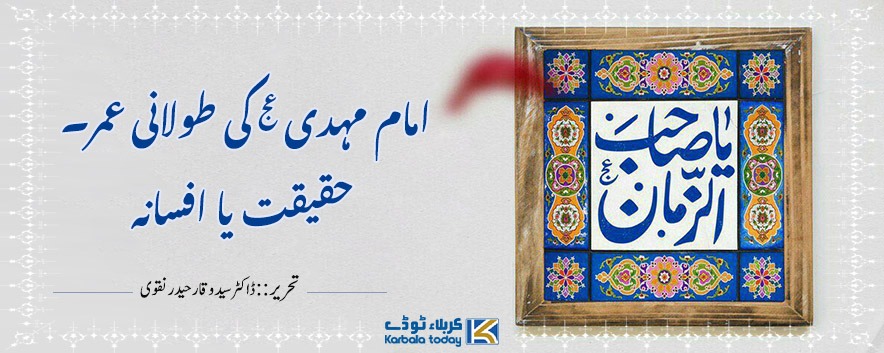 امام مہدی عج کی طولانی عمر۔
حقیقت یا افسانہ
تحریر::ڈاکٹر سید وقار حیدر نقوی
یا صاحب
الزّمان عج
کربلاء ٹوڈے
Karbala today